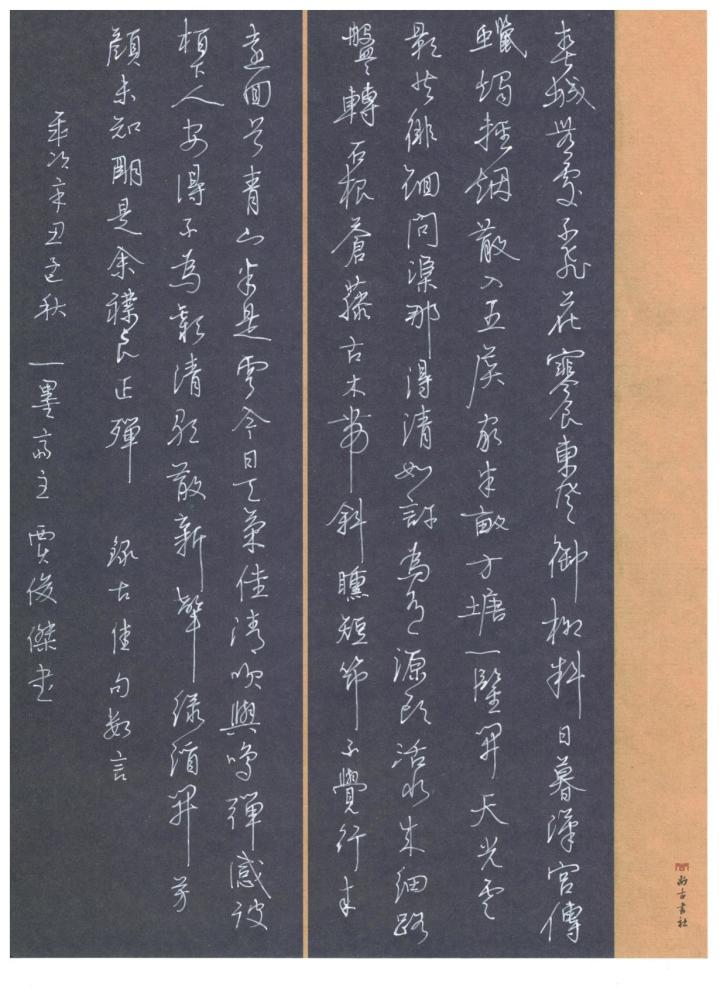 春城无处不飞花寒食东风御柳斜日暮汉宫传
蠟燭輕烟散入五侯家半畝方塘一鑒開天光雲
影共徘徊問渠那得清如許為有源頭活水来細路
盤轉石根蒼藤古木帶斜曛短節不覺行来
遠回首青山半是雲今日天氣佳清吹與鳴彈感彼
柏下人安得不為歡清歌散新聲緑酒開芳
顔未知明日事余襟良已殫 録古佳句数言
年次辛丑孟秋 一墨斋主 贾俊傑书
古書社